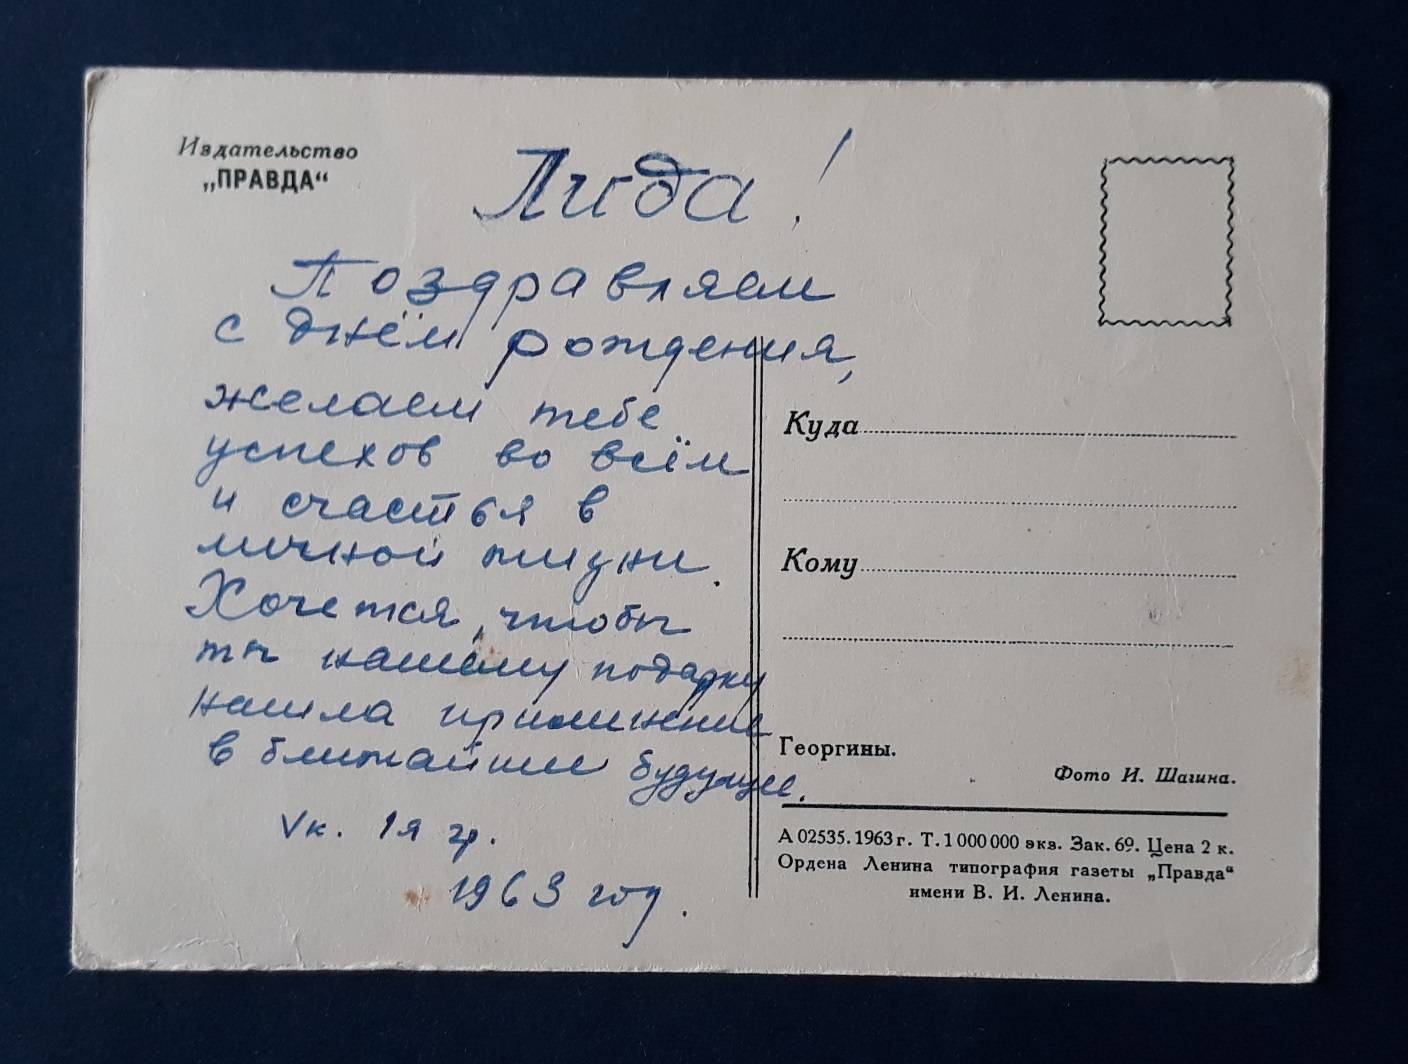 Издательство
„ПРАВДА“
Лида!
Поздравляем
с днём рождения,
желаем тебе
успехов во всём
и счастья в
личной жизни.
Хочется, чтобы
ты нашему подарку
нашла применение
в ближайшее будущее.
Vк. 1я гр.
1963 год.
Куда
Кому
Георгины.
Фото И. Шагина.
А 02535. 1963 г. Т. 1 000 000 экз. Зак. 69. Цена 2 к.
Ордена Ленина типография газеты „Правда“
имени В. И. Ленина.